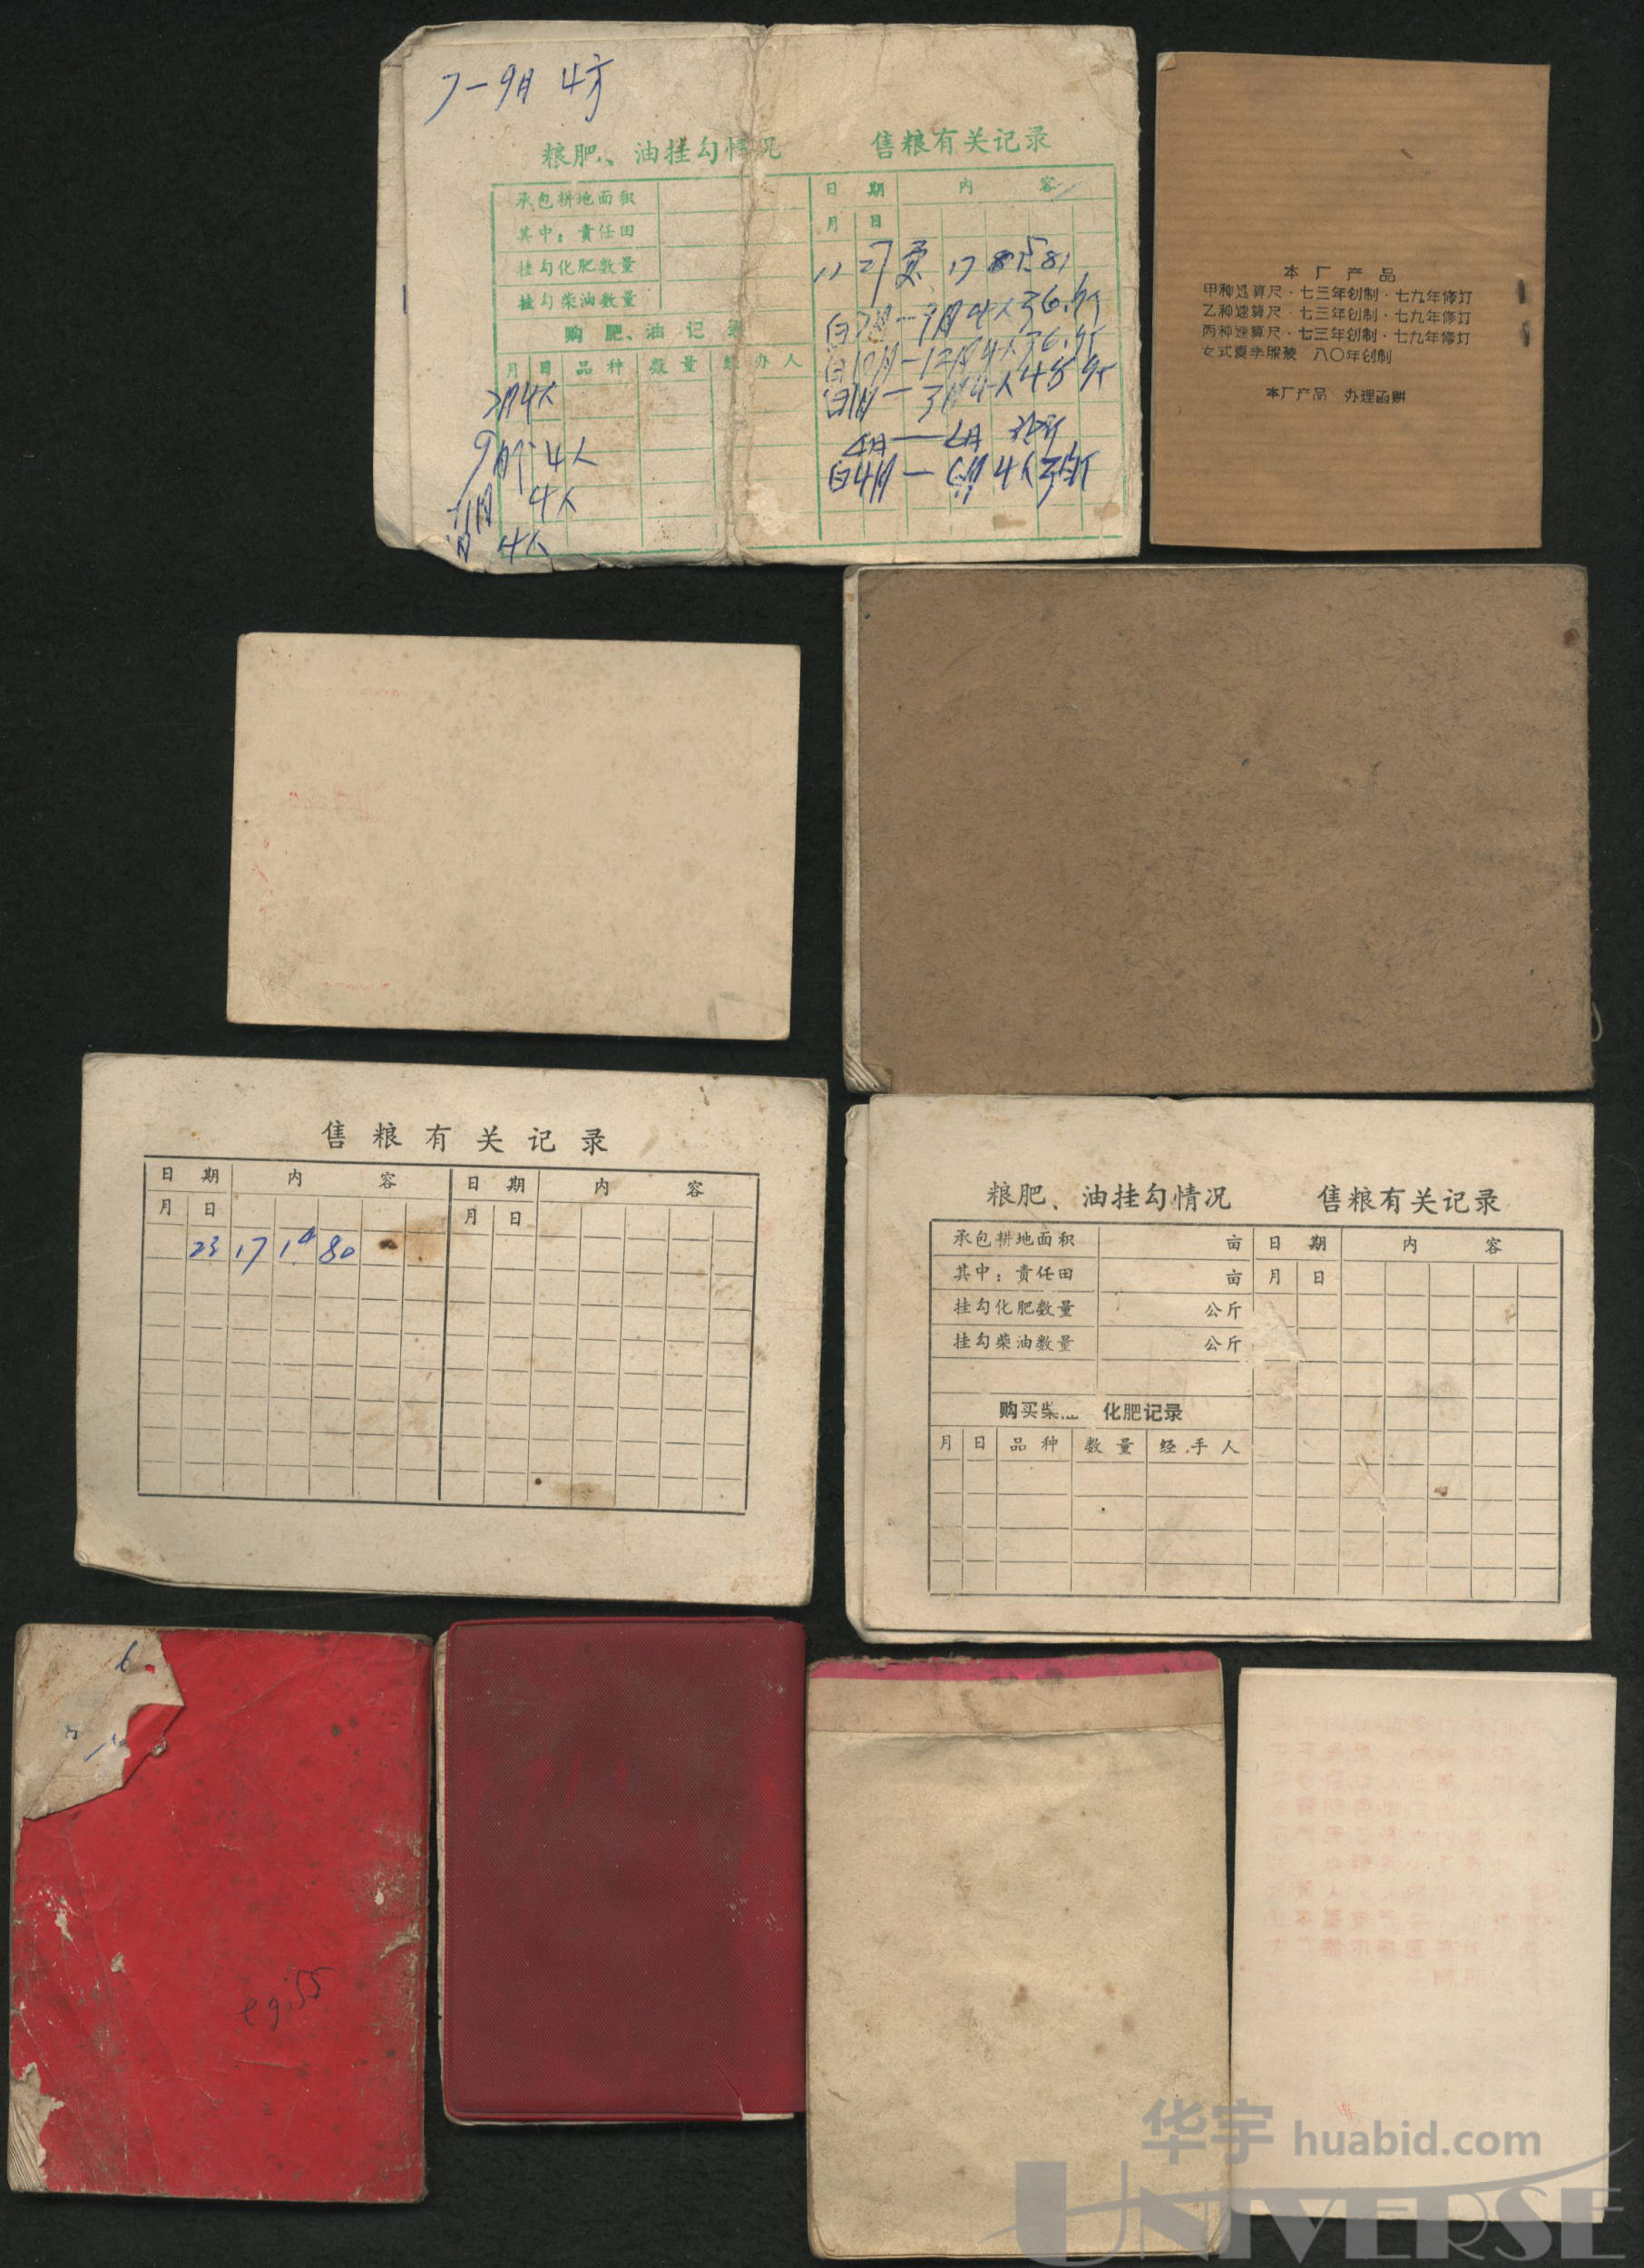 7—9月 4方
粮肥、油挂勾情况 售粮有关记录
承包耕地面积
其中：责任田
挂勾化肥数量
挂勾柴油数量
购肥、油记录
月 日 品种 数量 经办人
日期 内容
月 日
4人
9月 4人
11月 4人
月 4人
11 27
4月—6月
本厂产品
甲种速算尺·七三年创制·七九年修订
乙种速算尺·七三年创制·七九年修订
丙种速算尺·七三年创制·七九年修订
女式夏季服装 八〇年创制
本厂产品 办理函购
售粮有关记录
日期 内容 日期 内容
月 日 月 日
23 17 80
粮肥、油挂勾情况 售粮有关记录
承包耕地面积 亩 日期 内容
其中：责任田 亩 月 日
挂勾化肥数量 公斤
挂勾柴油数量 公斤
购买柴 化肥记录
月 日 品种 数量 经手人
6
华宇 huabid.com
UNIVERSE